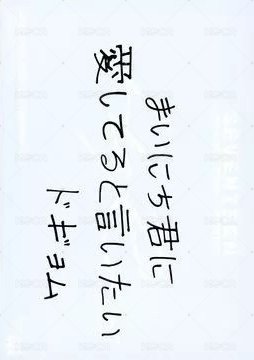 まいにち君に
愛してると言いたい
ドギョム